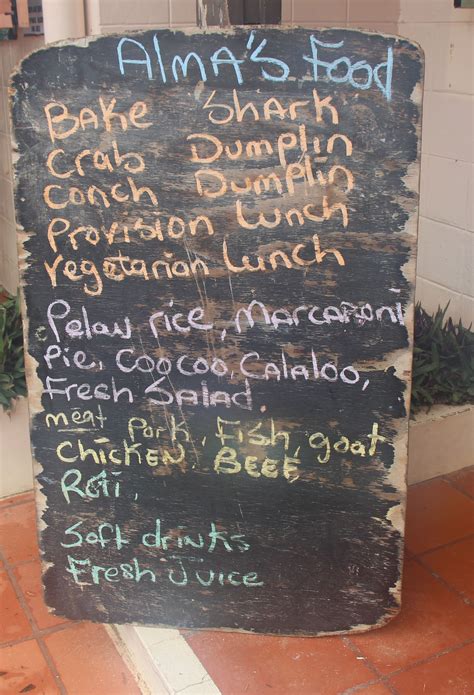 Alma's Food
Bake Shark
Crab Dumplin
Conch Dumplin
Provision Lunch
Vegetarian Lunch
Pelau rice, Marcaroni
Pie, Coocoo, Calaloo,
Fresh Salad.
meat Pork, Fish, goat
Chicken, Beef
Roti,
Soft drinks
Fresh Juice